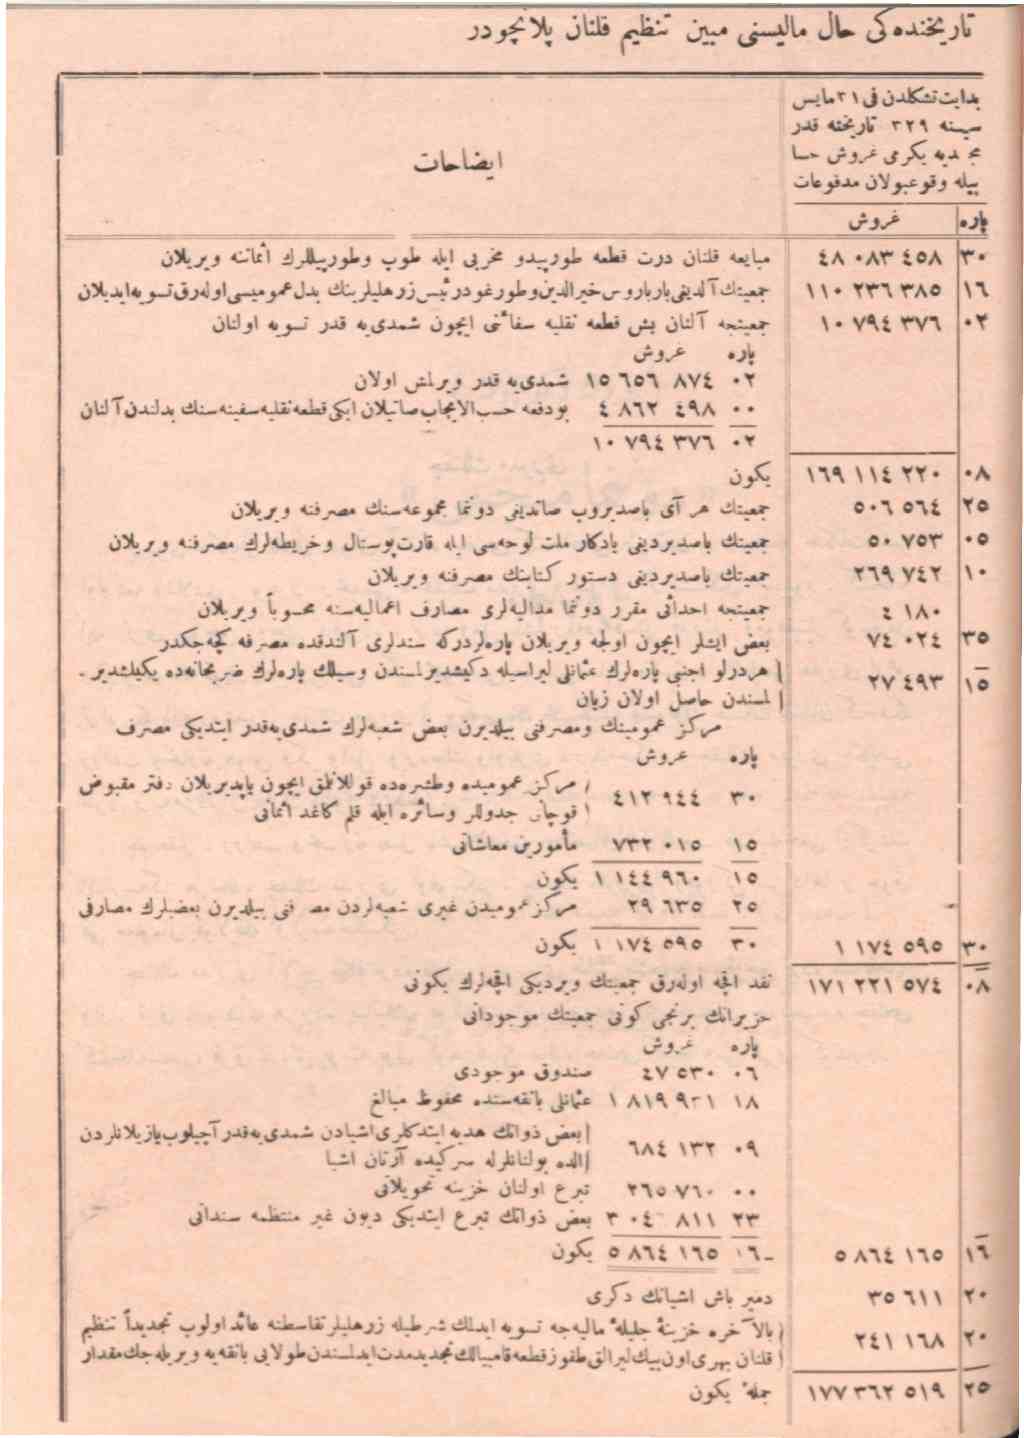 تاریخنده‌کی حال مالیسنی مبین تنظیم قلنان پلانچودر
بدایت تشکلدن فی ٣١ مایس
سنه ٣٢٩ تاریخنه قدر
مجیدیه یکرمی غروش حسا
بیله وقوعبولان مدفوعات
ایضاحات
پاره غروش
٣٠ ٤٨ ٠٨٣ ٤٥٨ مبایعه قلنان درت قطعه طورپیدو مخربی ایله طوپ وطورپیللرك اثماننه ویریلان
١٦ ١١٠ ٢٣٦ ٣٨٥ جمعیتك آلدیغی بارباروس خیرالدین وطورغود رئیس زرهلیلرینك بدل عمومیسی اوله‌رق تسویه ایدیلان
٠٢ ١٠ ٧٩٤ ٣٧٦ جمعیتجه آلنان بش قطعه نقلیه سفائنی ایچون شمدی‌یه قدر تسویه اولنان
پاره غروش
٠٢ ١٥ ٦٥٦ ٨٧٤ شمدی‌یه قدر ویرلمش اولان
٠٠ ٤ ٨٦٢ ٤٩٨ بودفعه حسب الایجاب صاتیلان ایکی قطعه نقلیه سفینه سنك بدلندن آلنان
٠٢ ١٠ ٧٩٤ ٣٧٦
٠٨ ١٦٩ ١١٤ ٢٢٠ یکون
٢٥ ٥٠٦ ٥٦٤ جمعیتك هر آی باصدیروب صاتدیغی دوننما مجموعه‌سنك مصرفنه ویریلان
٠٥ ٥٠ ٧٥٣ جمعیتك باصدیردیغی یادکار ملت لوحه‌سی ایله قارت پوستال وخریطه‌لرك مصرفنه ویریلان
١٠ ٢٦٩ ٧٤٢ جمعیتك باصدیردیغی دستور کتابنك مصرفنه ویریلان
٤ ١٨٠ جمعیتجه احداثی مقرر دوننما مدالیه‌لری مصارف اعمالیه‌سنه محسوباً ویریلان
٣٥ ٧٤ ٠٢٤ بعض ایشلر ایچون اولجه ویریلان پاره‌لردرکه سندلری آلندقده مصرفه کچه‌جکدر
١٥ ٢٧ ٤٩٣ هردرلو اجنبی پاره‌لرك عثمانلی لیراسیله دکیشدیرلمسندن وسیلك پاره‌لرك ضربخانه‌ده یکیلشدیر-
لمسندن حاصل اولان زیان
مرکز عمومینك ومصرفنی بیلدیرن بعض شعبه‌لرك شمدی‌یه‌قدر ایتدیکی مصرف
پاره غروش
٣٠ ٤١٢ ٩٤٤ مرکز عمومیده وطشره‌ده قوللانلمق ایچون یاپدیریلان دفتر مقبوض
قوچان جدوللر وسائره ایله قلم کاغد اثمانی
١٥ ٧٣٢ ٠١٥ مأمورین معاشاتی
١٥ ١ ١٤٤ ٩٦٠ یکون
٢٥ ٢٩ ٦٣٥ مرکز عمومیدن غیری شعبه‌لردن مصرفنی بیلدیرن بعضیلرك مصارفی
٣٠ ١ ١٧٤ ٥٩٥ یکون
٣٠ ١ ١٧٤ ٥٩٥
٠٨ ١٧١ ٢٢١ ٥٧٤ نقد اقچه اوله‌رق جمعیتك ویردیکی اقچه‌لرك یکونی
حزیرانك برنجی کونی جمعیتك موجوداتی
پاره غروش
٠٦ ٤٧ ٥٣٠ صندوق موجودی
١٨ ١ ٨١٩ ٩٣١ عثمانلی بانقه‌سنده محفوظ مبالغ
٠٩ ٦٨٤ ١٣٢ بعض ذواتك هدیه ایتدکلری اشیادن شمدی‌یه‌قدر آچیلوب یازیلانلردن
الده بولنانلرله سرکیده آرتان اشیا
٠٠ ٢٦٥ ٧٦٠ تبرع اولنان خزینه تحویلاتی
٢٣ ٣ ٠٤٦ ٨١١ بعض ذواتك تبرع ایتدیکی دیون غیر منتظمه سنداتی
١٦ ٥ ٨٦٤ ١٦٥ یکون
١٦ ٥ ٨٦٤ ١٦٥
٢٠ ٣٥ ٦١١ دمیر باش اشیانك دکری
٢٠ ٢٤١ ١٦٨ بالآخره خزینهٔ جلیلهٔ مالیه‌جه تسویه ایدلك شرطیله زرهلیلر تقاسطنه عائد اولوب تجدیداً تنظیم
قلنان بهری اون بیك لیرالق طقوز قطعه قامبیالك تجدید مدت ایدلمسندن طولایی بانقه‌یه ویریله‌جك مقدار
٢٥ ١٧٧ ٣٦٢ ٥١٩ جملهٔ یکون